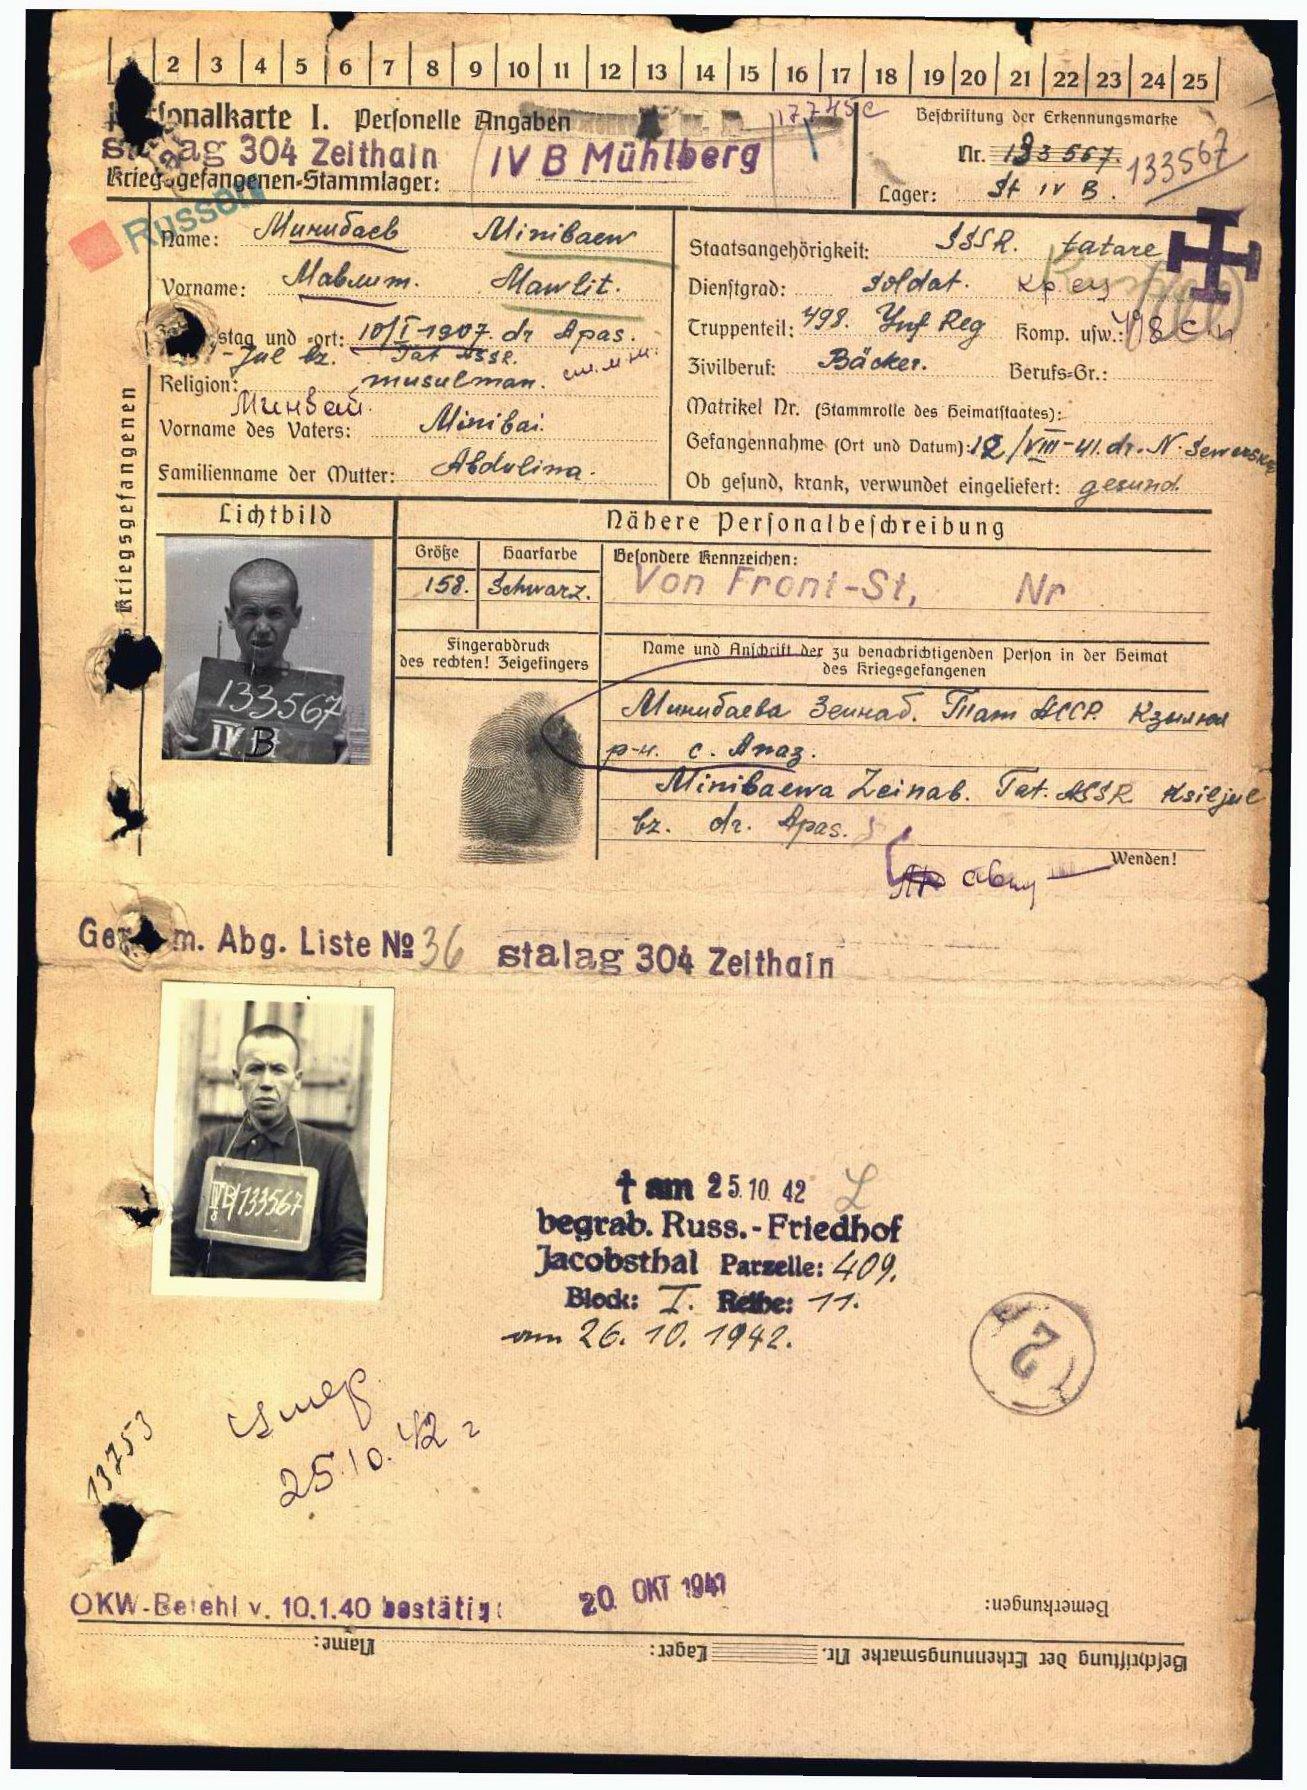 2 3 4 5 6 7 8 9 10 11 12 13 14 15 16 17 18 19 20 21 22 23 24 25
Personalkarte I. Personelle Angaben
17745c
Beschriftung der Erkennungsmarke
stalag 304 Zeithain IV B Mühlberg
Nr. 133567. 133567
Kriegsgefangenen-Stammlager:
Lager: St IV B.
Russen
Name: Минибаев Minibaew
Vorname: Мавлит. Mawlit.
stag und -ort: 10/I-1907. dr Apas.
-Jul bz. Tat ASSR.
Religion: musulman.
Минбай.
Vorname des Vaters: Minibai.
Familienname der Mutter: Abdulina.
Staatsangehörigkeit: SSSR. tatare
Dienstgrad: Soldat.
Truppenteil: 498. Inf Reg Komp. usw.:
Zivilberuf: Bäcker. Berufs-Gr.:
Matrikel Nr. (Stammrolle des Heimatstaates):
Gefangennahme (Ort und Datum): 12/VIII-41. dr. N. Sewerskij
Ob gesund, krank, verwundet eingeliefert: gesund.
Kriegsgefangenen
Lichtbild
Nähere Personalbeschreibung
Größe Haarfarbe Besondere Kennzeichen:
158. Schwarz. Von Front-St, Nr
Fingerabdruck
des rechten! Zeigefingers
Name und Anschrift der zu benachrichtigenden Person in der Heimat
des Kriegsgefangenen
133567
IV B
Минибаева Зейнаб. Тат АССР. Кзылюл
р-н. с. Апаз.
Minibaewa Zeinab. Tat. ASSR Ksiljul
bz. dr. Apas.
Wenden!
m. Abg. Liste № 36 stalag 304 Zeithain
IVB/133567
† am 25.10.42
begrab. Russ.-Friedhof
Jacobsthal Parzelle: 409.
Block: I. Reihe: 11.
am 26.10.1942.
2
умер
25.10.42 г
13753
OKW-Befehl v. 10.1.40 bestätigt 20. OKT 1941
Bemerkungen:
Name:
Lager:
Beschriftung der Erkennungsmarke Nr.